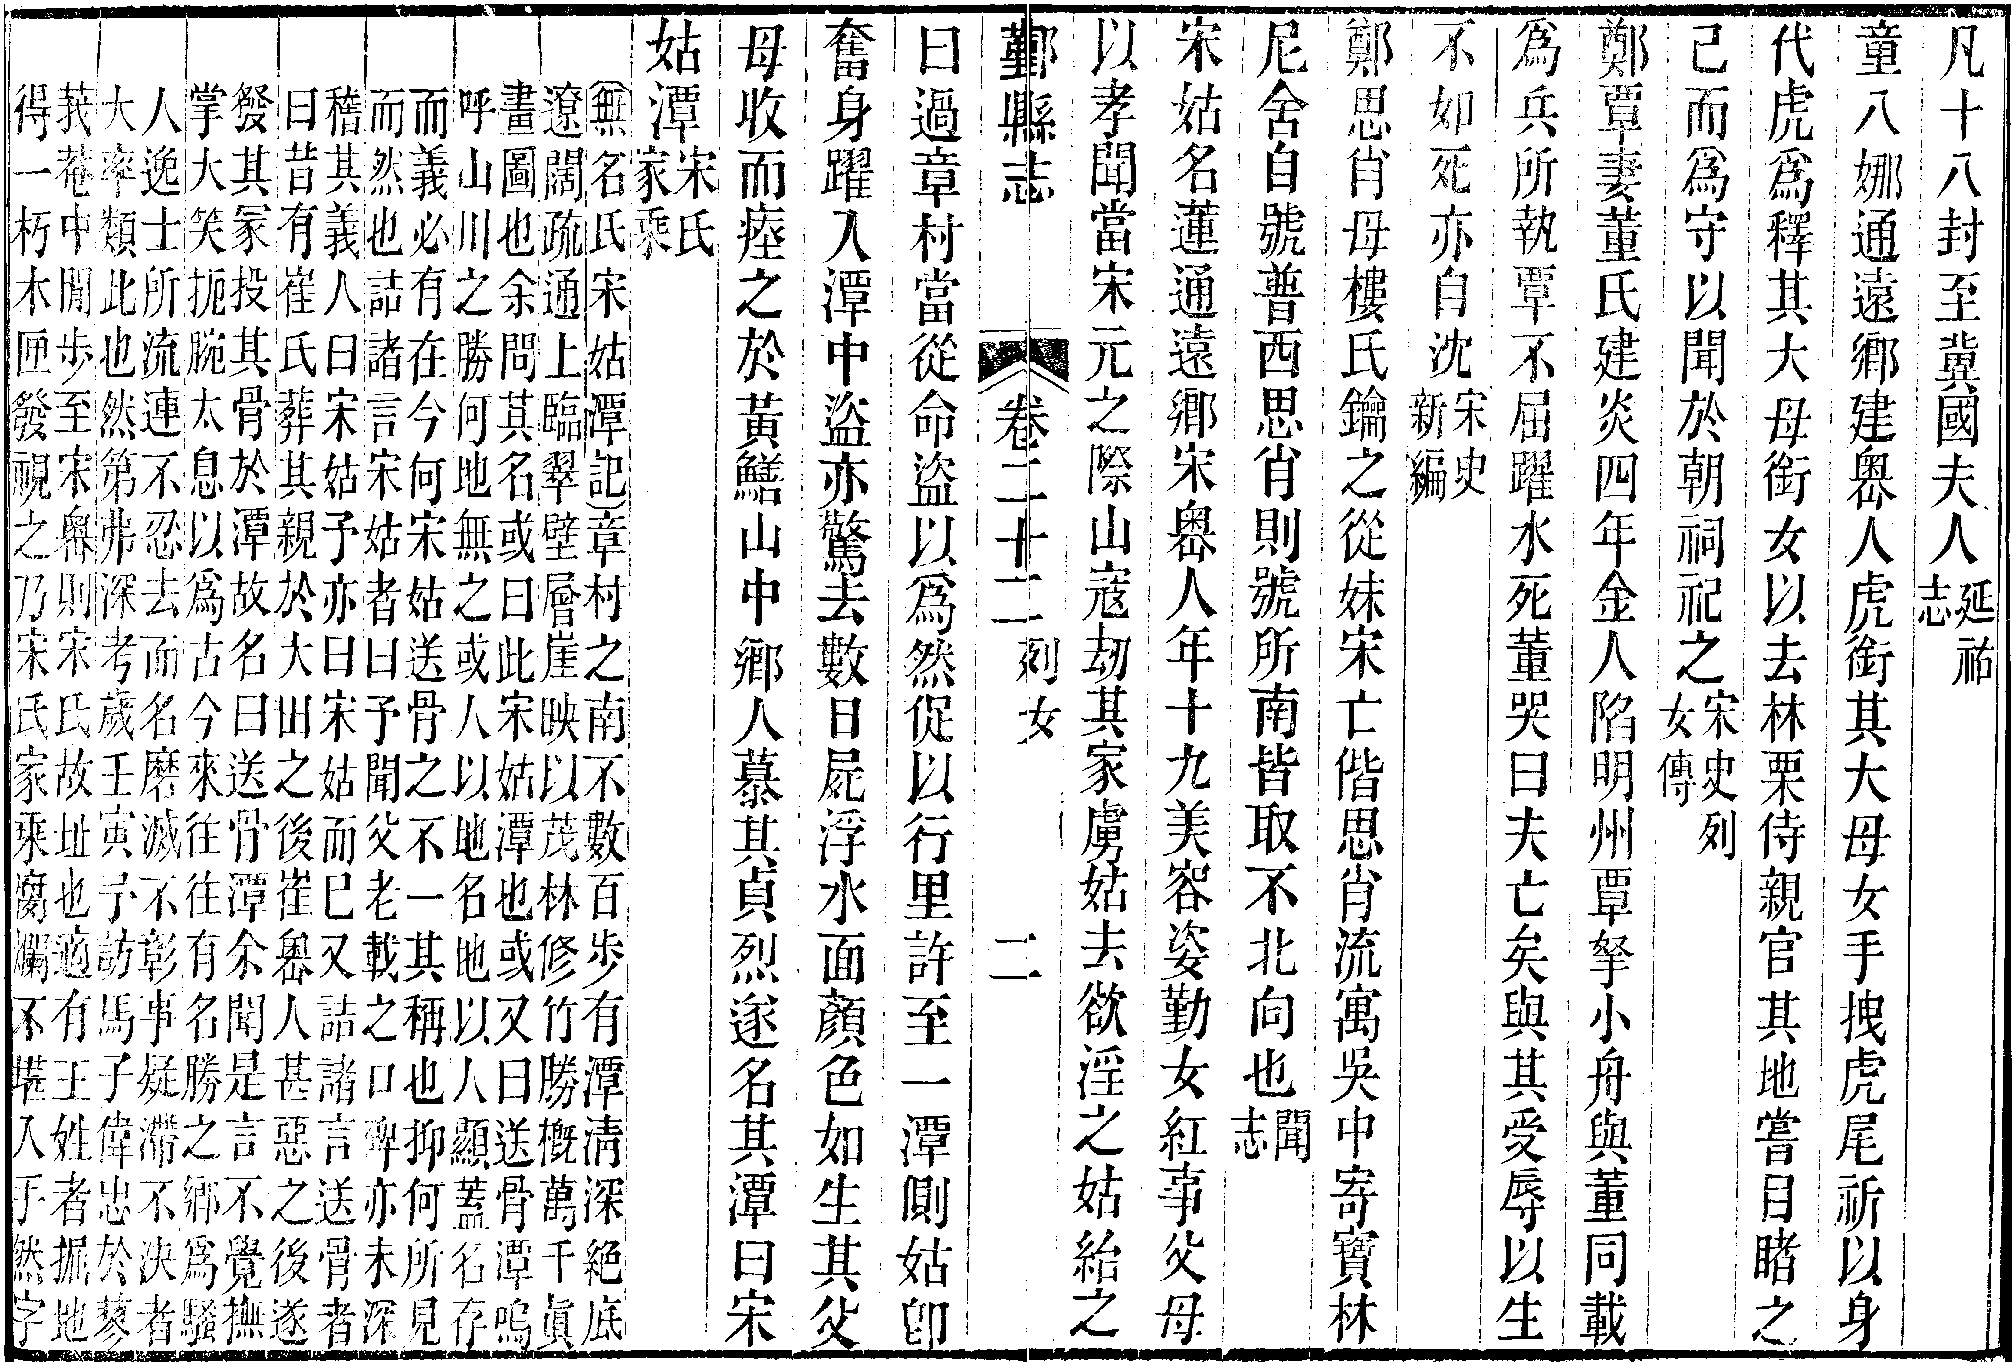 凡十八封至冀國夫人延祐志
童八娜通遠鄉建嶴人虎銜其大母女手拽虎尾祈以身
代虎爲釋其大母銜女以去林栗侍親官其地嘗目睹之
己而爲守以聞於朝祠祀之宋史列女傳
鄭覃妻董氏建炎四年金人陷明州覃拏小舟與董同載
爲兵所執覃不屈躍水死董哭曰夫亡矣與其受辱以生
不如死亦自沈宋史新編
鄭思肖母樓氏鑰之從妹宋亡偕思肖流寓吳中寄寶林
尼舍自號普西思肖則號所南皆取不北向也聞志
宋姑名蓮通遠鄉宋嶴人年十九美容姿勤女紅事父母
以孝聞當宋元之際山寇劫其家虜姑去欲淫之姑紿之
鄞縣志 卷二十二 列女 二
曰過章村當從命盜以爲然促以行里許至一潭側姑卽
奮身躍入潭中盜亦驚去數日屍浮水面顏色如生其父
母收而瘞之於黃鱔山中鄉人慕其貞烈遂名其潭曰宋
姑潭宋氏家乘
(無名氏宋姑潭記)章村之南不數百步有潭淸深絕底
遼闊疏通上臨翠壁層崖映以茂林修竹勝概萬千眞
畫圖也余問其名或曰此宋姑潭也或又曰送骨潭嗚
呼山川之勝何地無之或人以地名地以人顯蓋名存
而義必有在今何宋姑送骨之不一其稱也抑何所見
而然也詰諸言宋姑者曰予聞父老載之口碑亦未深
稽其義人曰宋姑予亦曰宋姑而已又詰諸言送骨者
曰昔有崔氏葬其親於大田之後崔嶴人甚惡之後遂
發其冢投其骨於潭故名曰送骨潭余聞是言不覺撫
掌大笑扼腕太息以爲古今來往往有名勝之鄉爲騷
人逸士所流連不忍去而名磨滅不彰事疑滯不決者
大率類此也然第弗深考歲壬寅予訪馬子偉忠於蓼
莪菴中閒步至宋嶴則宋氏故址也適有王姓者掘地
得一朽木匣發視之乃宋氏家乘腐爛不堪入手然字